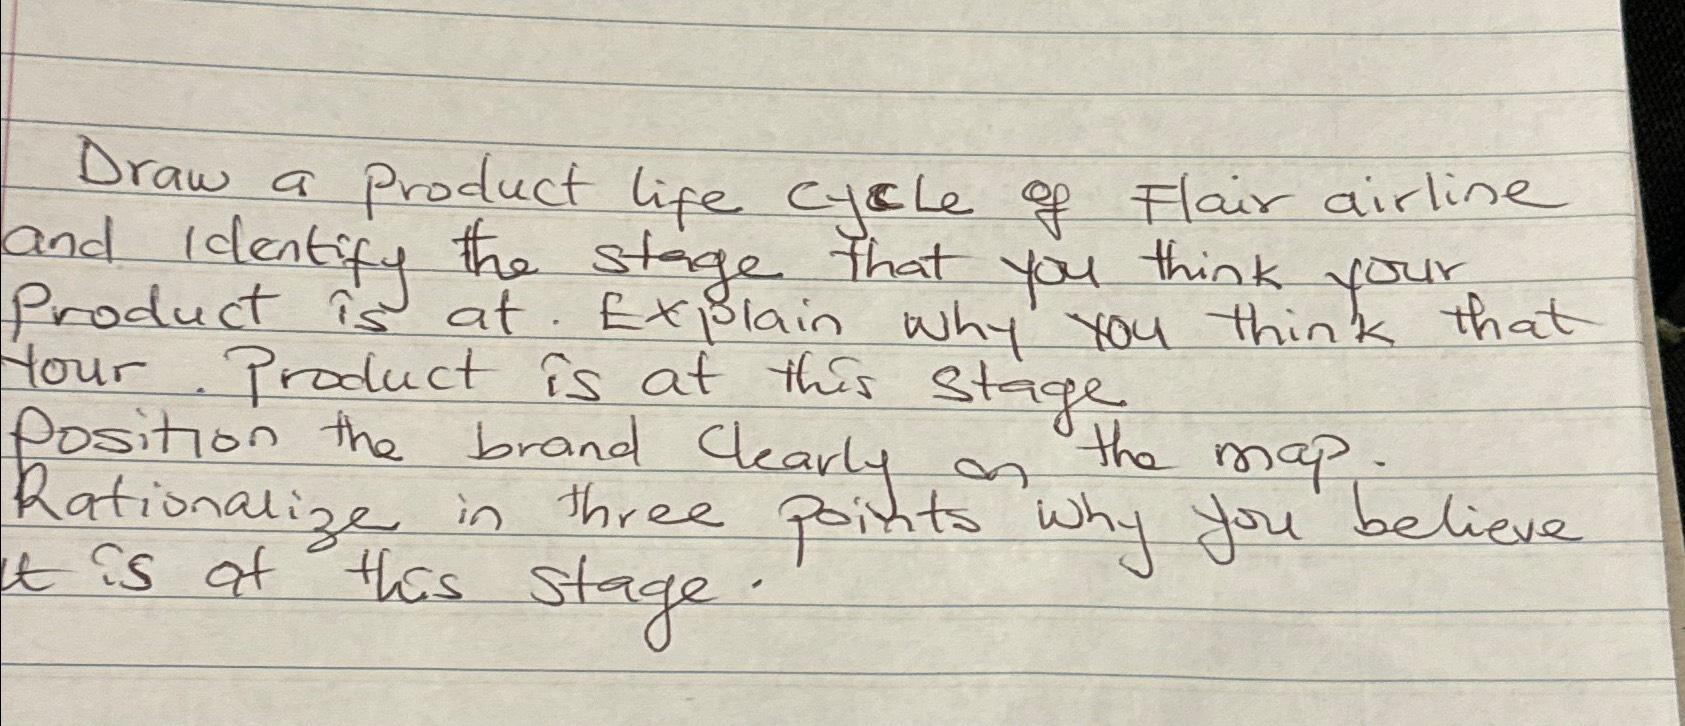 Draw a Product life cycle of Flair airline
and Identify the stage that you think your
Product is at. Explain why you think that
Your. Product is at this stage
Position the brand Clearly on the map.
Rationalize in three points why you believe
it is at this stage.